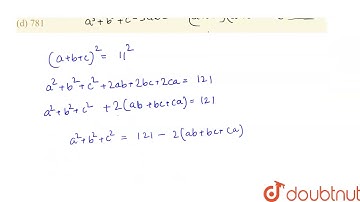 (d) 781
a³+b³+c³
(a+b+c)² = 11²
a²+b²+c²+2ab+2bc+2ca = 121
a²+b²+c² +2(ab+bc+ca) = 121
a²+b²+c² = 121 - 2(ab+bc+ca)
doubtnut